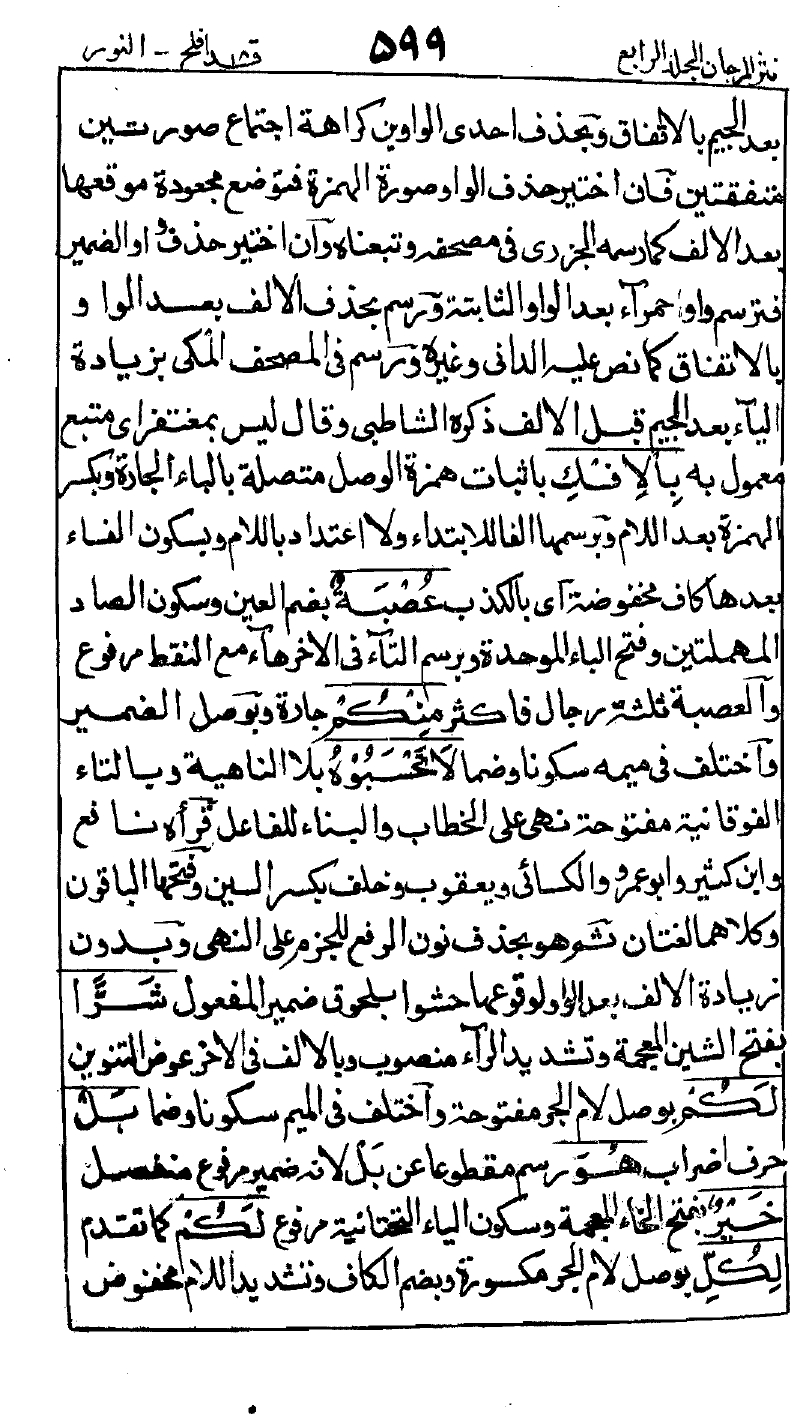 نثر المرجان المجلد الرابع ٥٩٩ قد افلح ١٨ - النور
بعد الجيم بالاتفاق وبحذف احدى الواوين كراهة اجتماع صورتين
متفقتين فان اختير حذف الواو صورة الهمزة فتوضع مجعودة موقعها
بعد الالف كما رسمه الجزرى فى مصحفه وتبعناه وان اختير حذف واو الضمير
فترسم واوا حمرآء بعد الواو الثابتة ورسم بحذف الالف بعد الواو
بالاتفاق كما نص عليه الدانى وغيره ورسم فى المصحف المكى بزيادة
اليآء بعد الجيم قبل الالف ذكره الشاطبى وقال ليس بمغتفر اى متبع
معمول به بِالْاِفْكِ باثبات همزة الوصل متصلة بالباء الجارة وبكسر
الهمزة بعد اللام وبرسمها الفا للابتداء ولا اعتداد باللام وبسكون الفاء
بعدها كاف مخفوضة اى بالكذب عُصْبَةٌ بضم العين وسكون الصاد
المهملتين وفتح الباء الموحدة وبرسم التآء فى الاخر هآء مع النقط مرفوع
والعصبة ثلثة رجال فاكثر مِنْكُمْ جارة وبوصل الضمير
واختلف فى ميمه سكونا وضما لَا تَحْسَبُوْهُ بلا الناهية وبالتاء
الفوقانية مفتوحة نهى على الخطاب والبناء للفاعل قرأه نافع
وابن كثير وابو عمرو والكسائى ويعقوب وخلف بكسر السين وفتحها الباقون
وكلاهما لغتان ثم هو بحذف نون الرفع للجزم على النهى وبدون
زيادة الالف بعد الواو لوقوعها حشوا بلحوق ضمير المفعول شَرًّا
بفتح الشين المعجمة وتشديد الرآء منصوب وبالالف فى الاخر عوض التنوين
لَكُمْ بوصل لام الجر مفتوحة واختلف فى الميم سكونا وضما بَلْ
حرف اضراب هُوَ رسم مقطوعا عن بَلْ لانه ضمير مرفوع منفصل
خَيْرٌ بفتح الخاء المعجمة وسكون الياء التحتانية مرفوع لَكُمْ كما تقدم
لِكُلِّ بوصل لام الجر مكسورة وبضم الكاف وتشديد اللام مخفوض